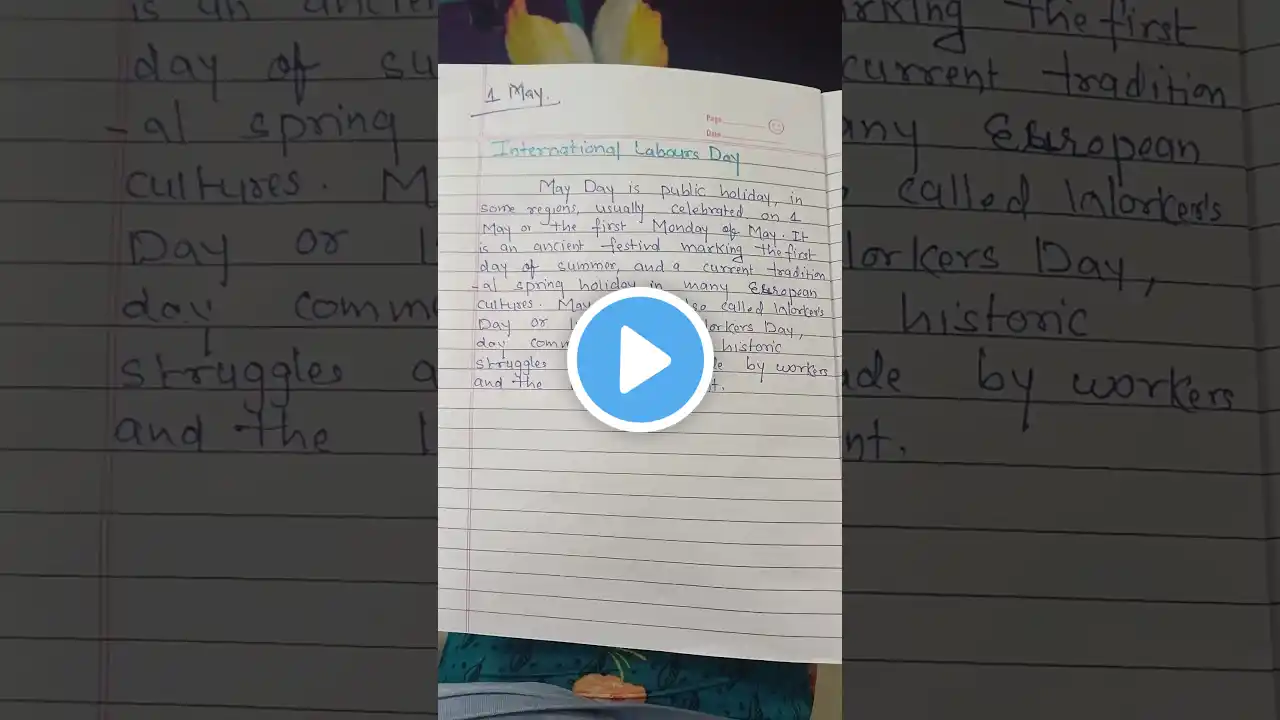 1 May.
Page
Date
International Labours Day
May Day is public holiday, in
some regions, usually celebrated on 1
May or the first Monday of May. It
is an ancient festival marking the first
day of summer, and a current tradition
-al spring holiday in many European
cultures. May called Worker's
Day or Workers Day,
day comm historic
struggles by workers
and the